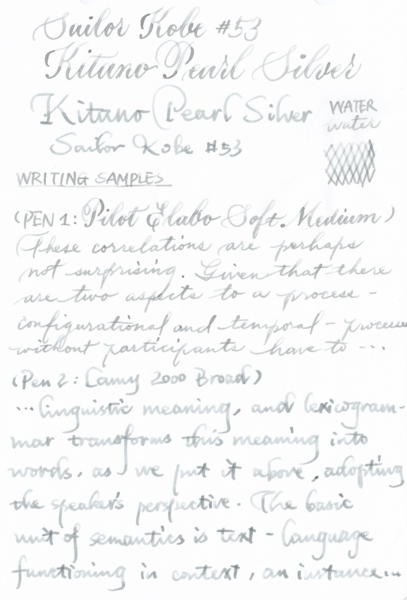 Sailor Kobe #53
Kitano Pearl Silver
Kitano Pearl Silver
Sailor Kobe #53
WATER
water
WRITING SAMPLES
(PEN 1: Pilot Elabo Soft. Medium)
(These correlations are perhaps
not surprising. Given that there
are two aspects to a process -
configurational and temporal - processes
without participants have to ...
(Pen 2: Lamy 2000 Broad)
... linguistic meaning, and lexicogram-
mar transforms this meaning into
words, as we put it above, adopting
the speaker's perspective. The basic
unit of semantics is text - language
functioning in context, an instance...